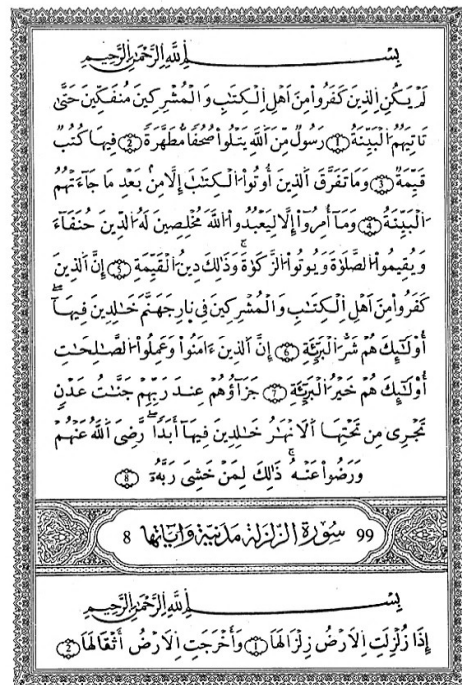 بِسْمِ اِللَّهِ اِلرَّحْمَٰنِ اِلرَّحِيمِ
لَمْ يَكُنِ اِلذِينَ كَفَرُواْ مِنَ اَهْلِ اِلْكِتَٰبِ وَالْمُشْرِكِينَ مُنفَكِّينَ حَتَّىٰ
تَاتِيَهُمُ اُلْبَيِّنَةُ 1 رَسُولٌ مِّنَ اَللَّهِ يَتْلُواْ صُحُفاً مُّطَهَّرَةً 2 فِيهَا كُتُبٌ
قَيِّمَةٌ 3 وَمَا تَفَرَّقَ اَلذِينَ أُوتُواْ اُلْكِتَٰبَ إِلَّا مِنۢ بَعْدِ مَا جَآءَتْهُمُ
اُلْبَيِّنَةُ 4 وَمَآ أُمِرُوٓاْ إِلَّا لِيَعْبُدُواْ اُللَّهَ مُخْلِصِينَ لَهُ اُلدِّينَ حُنَفَآءَ
وَيُقِيمُواْ اُلصَّلَوٰةَ وَيُوتُواْ اُلزَّكَوٰةَ وَذَٰلِكَ دِينُ اُلْقَيِّمَةِ 5 إِنَّ اَلذِينَ
كَفَرُواْ مِنَ اَهْلِ اِلْكِتَٰبِ وَالْمُشْرِكِينَ فِي نارِ جَهَنَّمَ خَٰلِدِينَ فِيهَآ
أُوْلَٰٓئِكَ هُمْ شَرُّ اُلْبَرِيٓـَٔةِ 6 إِنَّ اَلذِينَ ءَامَنُواْ وَعَمِلُواْ اُلصَّٰلِحَٰتِ
أُوْلَٰٓئِكَ هُمْ خَيْرُ اُلْبَرِيٓـَٔةِ 7 جَزَآؤُهُمْ عِندَ رَبِّهِمْ جَنَّٰتُ عَدْنٍ
تَجْرِي مِن تَحْتِهَا اَلَانْهَٰرُ خَٰلِدِينَ فِيهَآ أَبَداً رَّضِيَ اَللَّهُ عَنْهُمْ
وَرَضُواْ عَنْهُ ذَٰلِكَ لِمَنْ خَشِيَ رَبَّهُۥ 8
99 سُورَةُ الزَّلْزَلَة مَدَنِيَّة وَءَايَاتُهَا 8
بِسْمِ اِللَّهِ اِلرَّحْمَٰنِ اِلرَّحِيمِ
إِذَا زُلْزِلَتِ اِلَارْضُ زِلْزَالَهَا 1 وَأَخْرَجَتِ اِلَارْضُ أَثْقَالَهَا 2